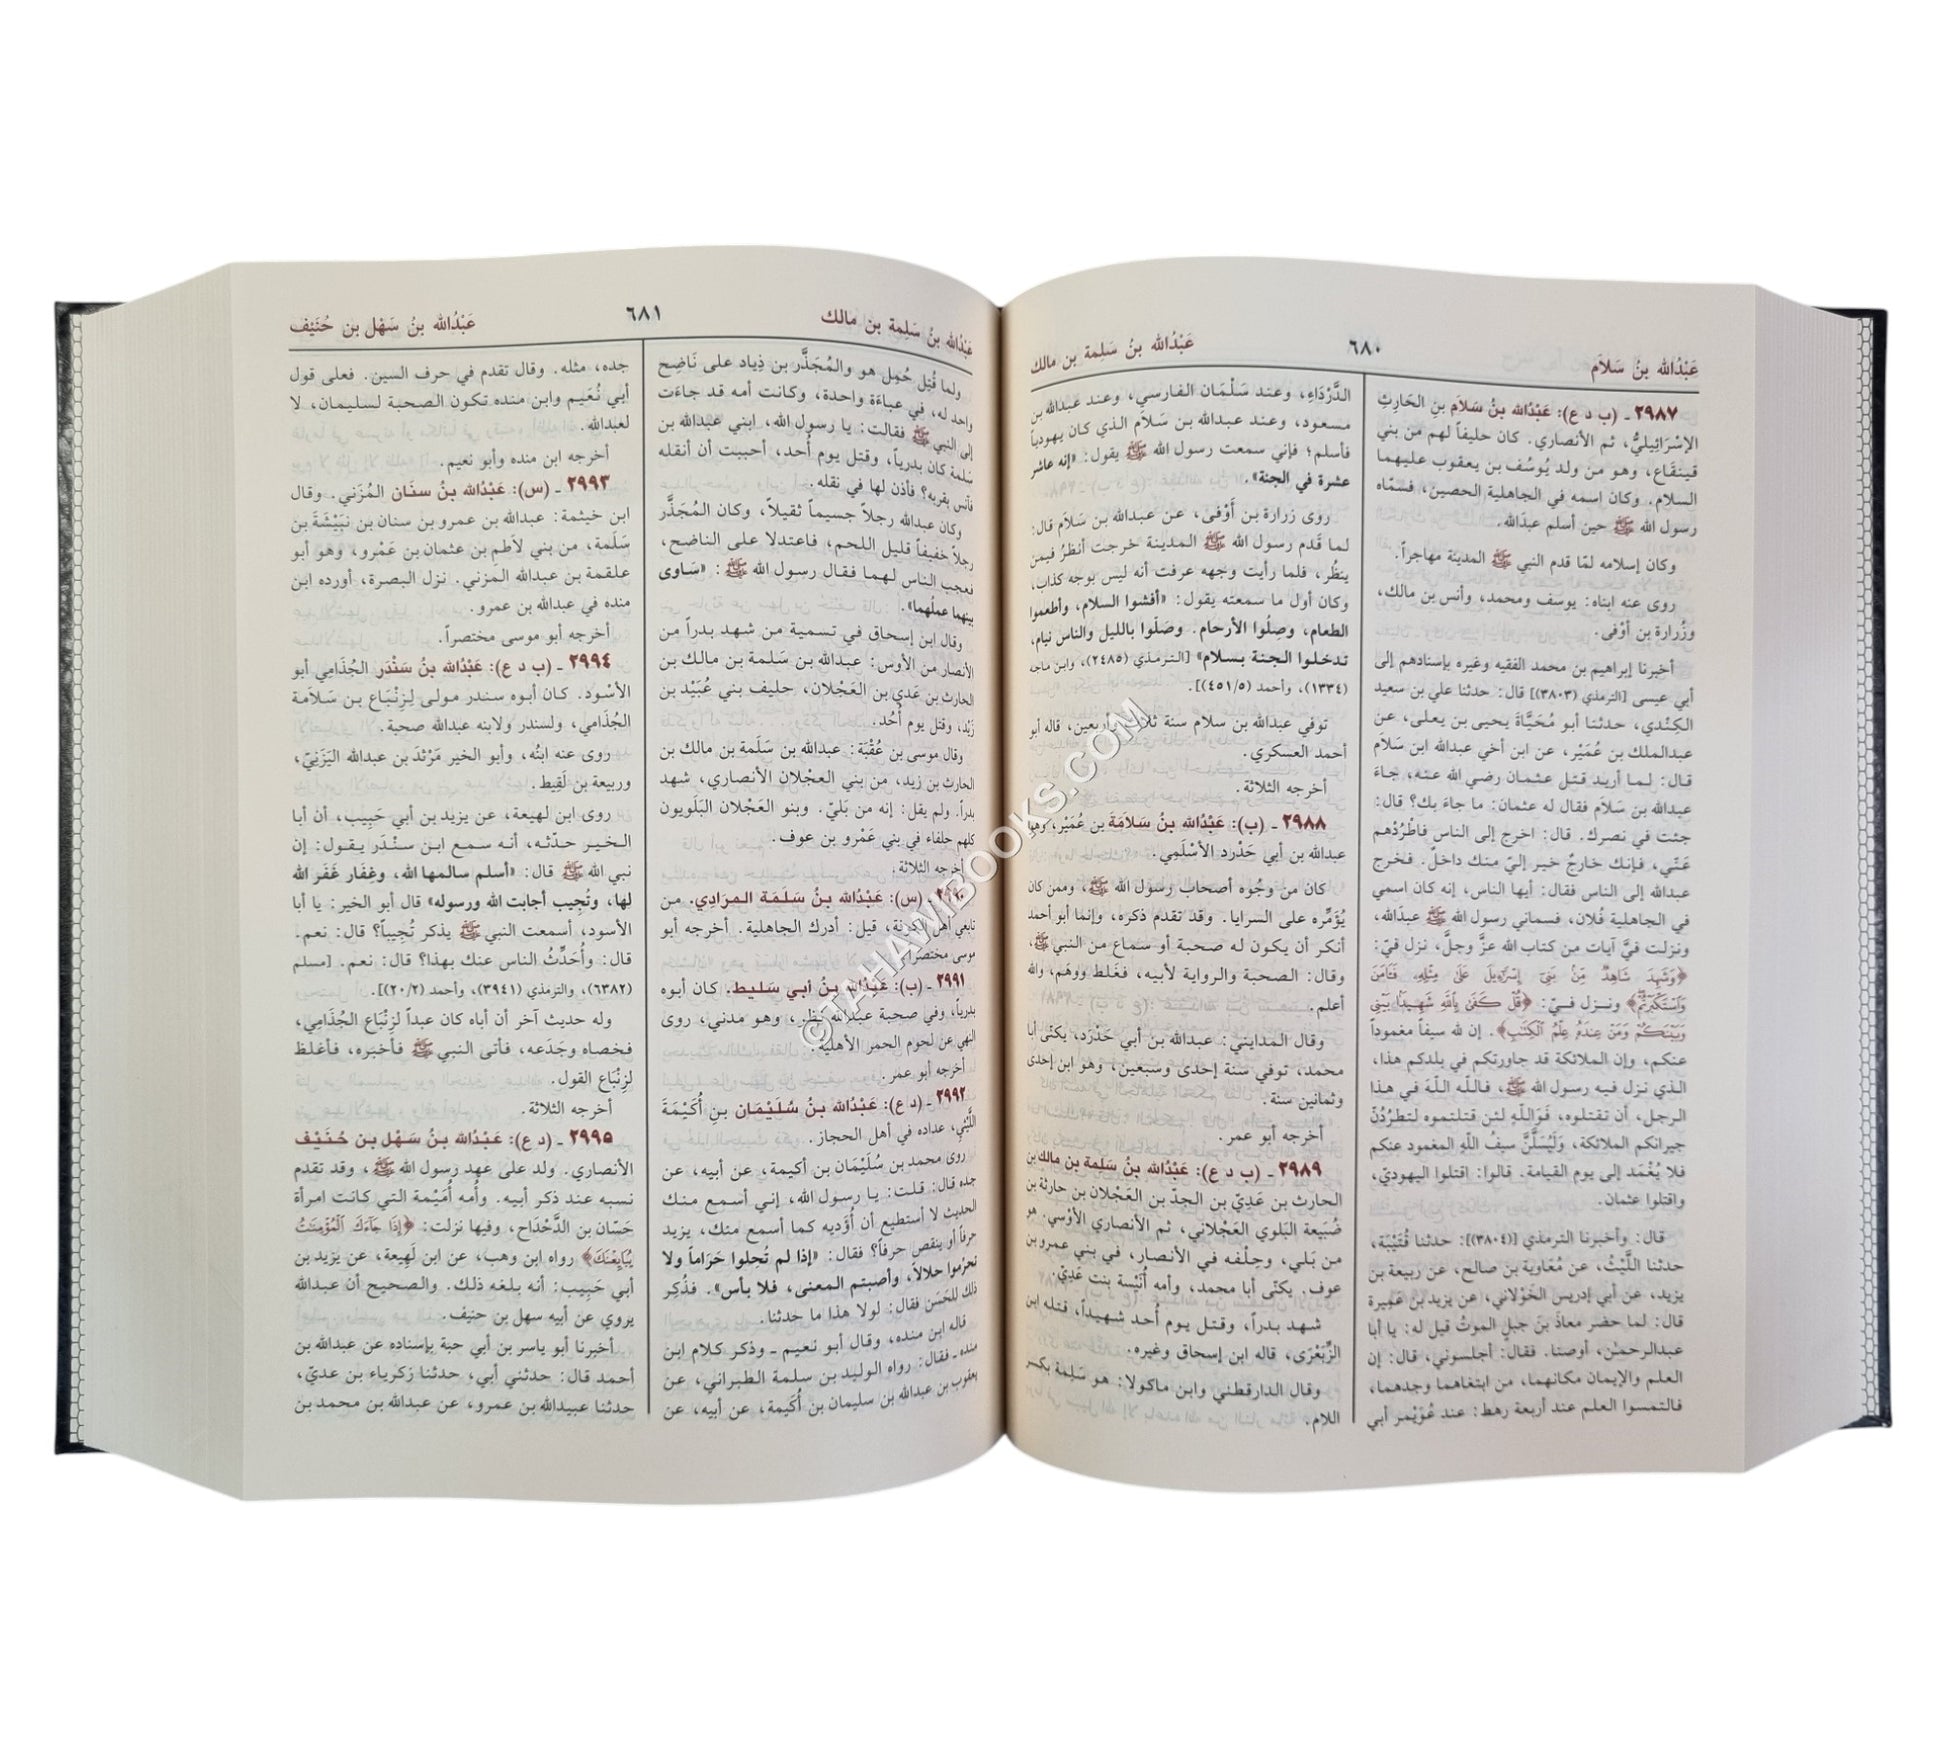 عَبْدُالله بنُ سَلاَم
٦٨٠
عَبْدُالله بنُ سَلِمة بن مالك
٢٩٨٧ - (ب د ع): عَبْدُالله بنُ سَلاَم بنِ الحَارِثِ
الإسْرَائِيليُّ، ثم الأنصاري. كان حليفاً لهم من بني
قينقَاع، وهو من ولد يُوسُف بن يعقوب عليهما
السلام. وكان اسمه في الجاهلية الحصين، فسمّاه
رسول الله ﷺ حين أسلم عبدَالله.
وكان إسلامه لمّا قدم النبي ﷺ المدينة مهاجراً.
روى عنه ابناه: يوسف ومحمد، وأنس بن مالك،
وزُرارة بن أَوْفى.
أخبرنا إبراهيم بن محمد الفقيه وغيره بإسنادهم إلى
أبي عيسى [الترمذي (٣٨٠٣)] قال: حدثنا علي بن سعيد
الكِنْدي، حدثنا أبو مُحَيَّاةَ يحيى بن يعلى، عن
عبدالملك بن عُمَيْر، عن ابن أخي عبدالله ابن سَلاَم
قال: لما أريد قتل عثمان رضي الله عنه، جاءَ
عبدالله بن سَلاَم فقال له عثمان: ما جاءَ بك؟ قال:
جئت في نصرك. قال: اخرج إلى الناس فاطْرُدْهم
عَنّي، فإنك خارجٌ خير إليّ منك داخلٌ. فخرج
عبدالله إلى الناس فقال: أيها الناس، إنه كان اسمي
في الجاهلية فُلان، فسماني رسول الله ﷺ عبدَالله،
ونزلت فيَّ آيات من كتاب الله عزَّ وجلَّ، نزل فيّ:
﴿وَشَهِدَ شَاهِدٌ مِّنْ بَنِي إِسْرَٰٓءِيلَ عَلَىٰ مِثْلِهِ فَـَٔامَنَ
وَٱسْتَكْبَرْتُمْ﴾ ونـزل فـيّ: ﴿قُلْ كَفَىٰ بِٱللَّهِ شَهِيدًا بَيْنِي
وَبَيْنَكُمْ وَمَنْ عِندَهُ عِلْمُ ٱلْكِتَٰبِ﴾. إن لله سيفاً مغموداً
عنكم، وإن الملائكة قد جاورتكم في بلدكم هذا،
الذي نزل فيه رسول الله ﷺ، فالله اللهَ في هذا
الرجل، أن تقتلوه، فَوَاللهِ لئن قتلتموه لتطرُدُنّ
جيرانكم الملائكة، وَلَيُسَلَّنَّ سيفُ اللهِ المغمود عنكم
فلا يُغْمَد إلى يوم القيامة. قالوا: اقتلوا اليهوديّ،
واقتلوا عثمان.
قال: وأخبرنا الترمذي [(٣٨٠٤)]: حدثنا قُتَيْبَة،
حدثنا اللَّيْثُ، عن مُعَاوية بن صالح، عن ربيعة بن
يزيد، عن أبي إدريس الخَوْلاني، عن يزيد بن عَمِيرة
قال: لما حضر معاذَ بنَ جبلٍ الموتُ قيل له: يا أبا
عبدالرحمٰن، أوصنا. فقال: أجلسوني، قال: إن
العلم والإيمان مكانهما، من ابتغاهما وجدهما،
فالتمسوا العلم عند أربعة رهط: عند عُوَيْمر أبي
الدَّرْدَاءِ، وعند سَلْمَان الفارسي، وعند عبدالله بن
مسعود، وعند عبدالله بن سَلاَم الذي كان يهودياً
فأسلم؛ فإني سمعت رسول الله ﷺ يقول: «إنه عاشر
عشرة في الجنة».
روى زرارة بن أَوْفى، عن عبدالله بن سَلاَم قال:
لما قَدم رسول الله ﷺ المدينة خرجت أنظرُ فيمن
ينظُر، فلما رأيت وجهه عرفت أنه ليس بوجه كذاب،
وكان أول ما سمعته يقول: «أفشوا السلام، وأطعموا
الطعام، وصِلُوا الأرحام. وصَلّوا بالليل والناس نيام،
تدخلوا الجنة بسلام» [الترمذي (٢٤٨٥)، وابن ماجه
(١٣٣٤)، وأحمد (٤٥١/٥)].
توفي عبدالله بن سلام سنة ثلاث وأربعين، قاله أبو
أحمد العسكري.
أخرجه الثلاثة.
٢٩٨٨ - (ب): عَبْدُالله بنُ سَلاَمَة بن عُمَيْر، وهو
عبدالله بن أبي حَدْرد الأسْلَمِي.
كان من وجُوه أصحاب رسول الله ﷺ، وممن كان
يُؤَمِّره على السرايا. وقد تقدم ذكره، وإنما أبو أحمد
أنكر أن يكون له صحبة أو سماع من النبي ﷺ،
وقال: الصحبة والرواية لأبيه، فغَلط ووهَم، والله
أعلم.
وقال المدايني: عبدالله بن أبي حَدْرَد، يكنّى أبا
محمد، توفي سنة إحدى وسبعين، وهو ابن إحدى
وثمانين سنة.
أخرجه أبو عمر.
٢٩٨٩ - (ب د ع): عَبْدُالله بنُ سَلِمة بن مالك بن
الحارث بن عَدِيّ بن الجدّ بن العَجْلان بن حارثة بن
ضُبَيعة البَلوي العَجْلاني، ثم الأنصاري الأوْسي. هو
من بَلي، وحِلْفه في الأنصار، في بني عمرو بن
عوف. يكنّى أبا محمد، وأمه أُنَيْسة بنت عَدِيّ.
شهد بدراً، وقتل يوم أُحد شهيداً، قتله ابن
الزِّبَعْرَى، قاله ابن إسحاق وغيره.
وقال الدارقطني وابن ماكولا: هو سَلِمة بكسر
اللام.
عَبْدُالله بنُ سَلِمة بن مالك
٦٨١
عَبْدُالله بنُ سَهْل بن حُنَيْف
ولما قُتِل حُمِل هو والمُجَذَّر بن ذِياد على نَاضِح
واحد له، في عباءَة واحدة، وكانت أمه قد جاءَت
إلى النبي ﷺ فقالت: يا رسول الله، ابني عبدالله بن
سَلِمة كان بدرياً، وقتل يوم أُحد، أحببت أن أنقله
فآنس بقربه؟ فأذن لها في نقله.
وكان عبدالله رجلاً جسيماً ثقيلاً، وكان المُجَذَّر
رجلاً خفيفاً قليل اللحم، فاعتدلا على الناضح،
فعجب الناس لهما فقال رسول الله ﷺ: «سَاوى
بينهما عملُهما».
وقال ابن إسحاق في تسمية من شهد بدراً من
الأنصار من الأوس: عبدالله بن سَلِمة بن مالك بن
الحارث بن عَدي بن العَجْلان، حليف بني عُبَيْد بن
زَيْد، وقتل يوم أُحُد.
وقال موسى بن عُقْبَة: عبدالله بن سَلَمة بن مالك بن
الحارث بن زيد، من بني العجْلان الأنصاري، شهد
بدراً. ولم يقل: إنه من بَليّ. وبنو العَجْلان البَلَويون
كلهم حلفاء في بني عَمْرو بن عوف.
أخرجه الثلاثة.
٢٩٩٠ - (س): عَبْدُالله بنُ سَلَمَة المرَادِي. من
تابعي أهل الكوفة، قيل: أدرك الجاهلية. أخرجه أبو
موسى مختصراً.
٢٩٩١ - (ب): عَبْدُالله بنُ أبي سَلِيط. كان أبوه
بدرياً، وفي صحبة عبدالله نظر. وهو مدني، روى
النهي عن لحوم الحمر الأهلية.
أخرجه أبو عمر.
٢٩٩٢ - (د ع): عَبْدُالله بنُ سُلَيْمَان بنِ أُكَيْمَةَ
اللَّيْثي، عداده في أهل الحجاز.
روى محمد بن سُلَيْمَان بن أكيمة، عن أبيه، عن
جده قال: قلت: يا رسول الله، إني أسمع منك
الحديث لا أستطيع أن أُؤدِّيه كما أسمع منك، يزيد
حرفاً أو ينقص حرفاً؟ فقال: «إذا لم تُحلوا حَرَاماً ولا
تحرّموا حلالاً، وأصبتم المعنى، فلا بأس». فذُكِر
ذلك للحَسَن فقال: لولا هذا ما حدثنا.
قاله ابن منده، وقال أبو نعيم - وذكر كلام ابن
منده - فقال: رواه الوليد بن سلمة الطبراني، عن
يعقوب بن عبدالله بن سليمان بن أُكَيمة، عن أبيه، عن
جده، مثله. وقال تقدم في حرف السين. فعلى قول
أبي نُعَيم وابن منده تكون الصحبة لسليمان، لا
لعبدالله.
أخرجه ابن منده وأبو نعيم.
٢٩٩٣ - (س): عَبْدُالله بنُ سنَان المُزَني. وقال
ابن خيثمة: عبدالله بن عمرو بن سنان بن نبَيْشَة بن
سَلَمة، من بني لاَطِم بن عثمان بن عَمْرو، وهو أبو
علقمة بن عبدالله المزني. نزل البصرة، أورده ابن
منده في عبدالله بن عمرو.
أخرجه أبو موسى مختصراً.
٢٩٩٤ - (ب د ع): عَبْدُالله بنُ سَنْدَر الجُذَامي أبو
الأسْود. كان أبوه سندر مولى لزِنْبَاع بن سَلاَمة
الجُذَامي، ولسندر ولابنه عبدالله صحبة.
روى عنه ابنُه، وأبو الخير مَرْثَد بن عبدالله اليَزَنِيّ،
وربيعة بن لَقِيط.
روى ابن لهيعة، عن يزيد بن أبي حَبِيب، أن أبا
الخير حدّثه، أنه سمع ابن سنْدَر يقول: إن
نبي الله ﷺ قال: «أسلم سالمها الله، وغِفَار غَفَر الله
لها، وتُجِيب أجابت الله ورسوله» قال أبو الخير: يا أبا
الأسود، أسمعت النبي ﷺ يذكر تُجِيباً؟ قال: نعم.
قال: وأُحَدِّثُ الناس عنك بهذا؟ قال: نعم. [مسلم
(٦٣٨٢)، والترمذي (٣٩٤١)، وأحمد (٢٠/٢)].
وله حديث آخر أن أباه كان عبداً لزِنْبَاع الجُذَامي،
فخصاه وجَدَعه، فأتى النبي ﷺ فأخبَره، فأغلظ
لزِنْبَاع القول.
أخرجه الثلاثة.
٢٩٩٥ - (د ع): عَبْدُالله بنُ سَهْل بن حُنَيْف
الأنصاري. ولد على عهد رسول الله ﷺ، وقد تقدم
نسبه عند ذكر أبيه. وأُمه أُمَيْمة التي كانت امرأة
حَسّان بن الدَّحْدَاح، وفيها نزلت: ﴿إِذَا جَآءَكَ ٱلْمُؤْمِنَٰتُ
يُبَايِعْنَكَ﴾ رواه ابن وهب، عن ابن لَهِيعة، عن يزيد بن
أبي حَبِيب: أنه بلغه ذلك. والصحيح أن عبدالله
يروي عن أبيه سهل بن حنيف.
أخبرنا أبو ياسر بن أبي حبة بإسناده عن عبدالله بن
أحمد قال: حدثني أبي، حدثنا زكرياء بن عديّ،
حدثنا عبيدالله بن عمرو، عن عبدالله بن محمد بن
©TAHAWIBOOKS.COM